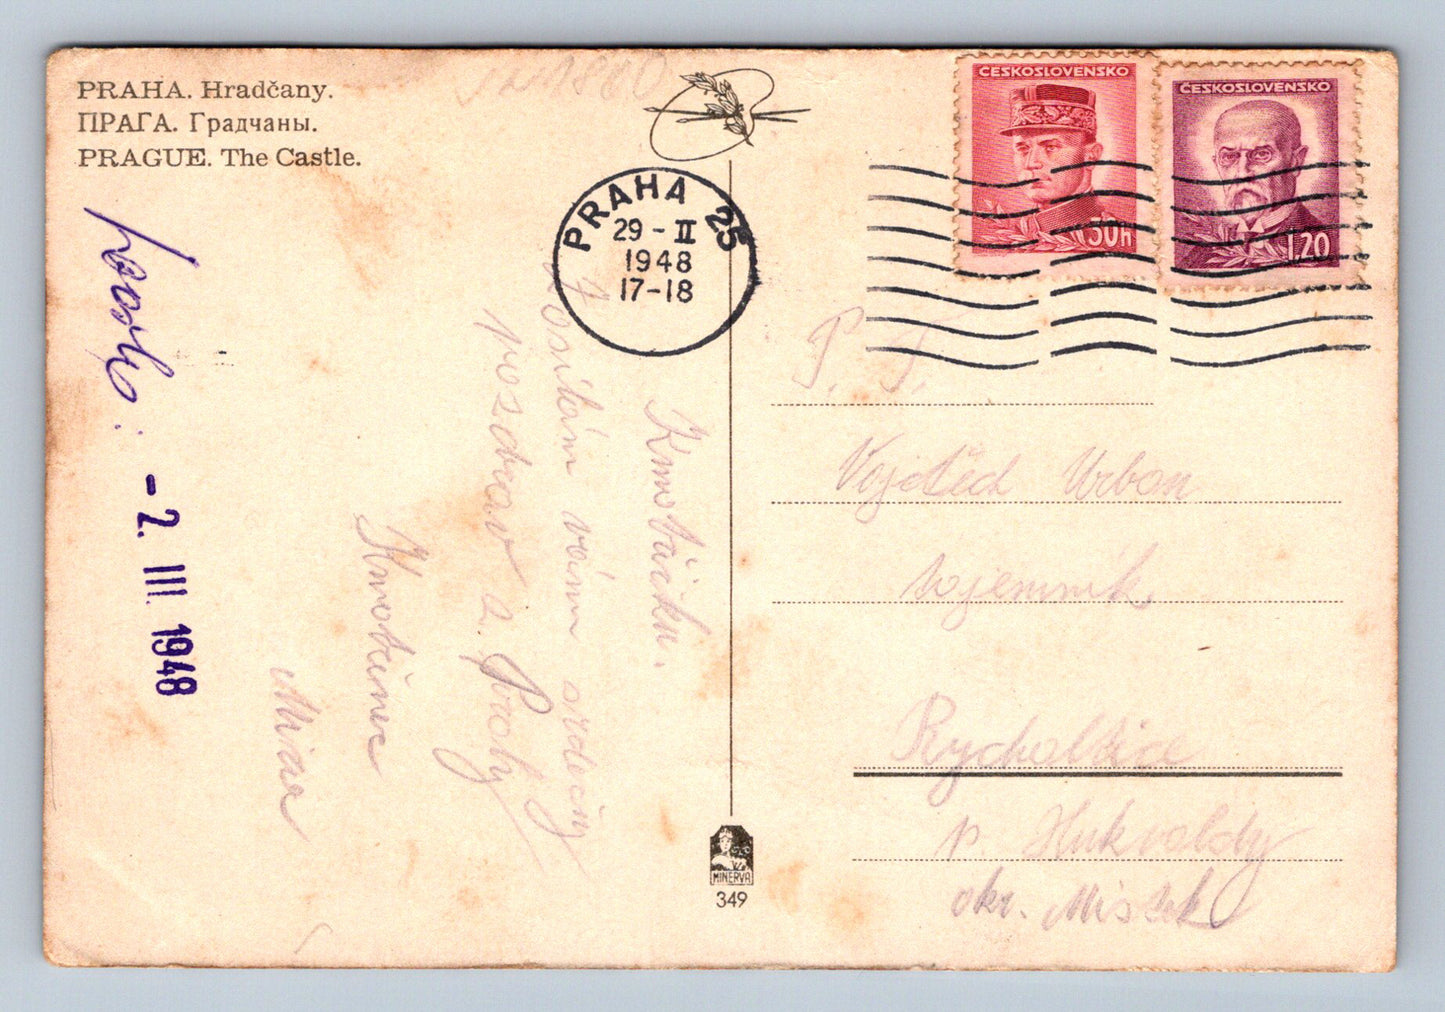 PRAHA. Hradčany.
ПРАГА. Градчаны.
PRAGUE. The Castle.
ČESKOSLOVENSKO
50H
ČESKOSLOVENSKO
1.20
PRAHA 25
29 - II
1948
17-18
- 2. III. 1948
Kmotřičku.
posílám vám srdečný
pozdrav z Prahy
Kmotřenec
P. T.
Vojtěch Urban
tajemník
Rychaltice
p. Hukvaldy
okr. Místek
MINERVA
349